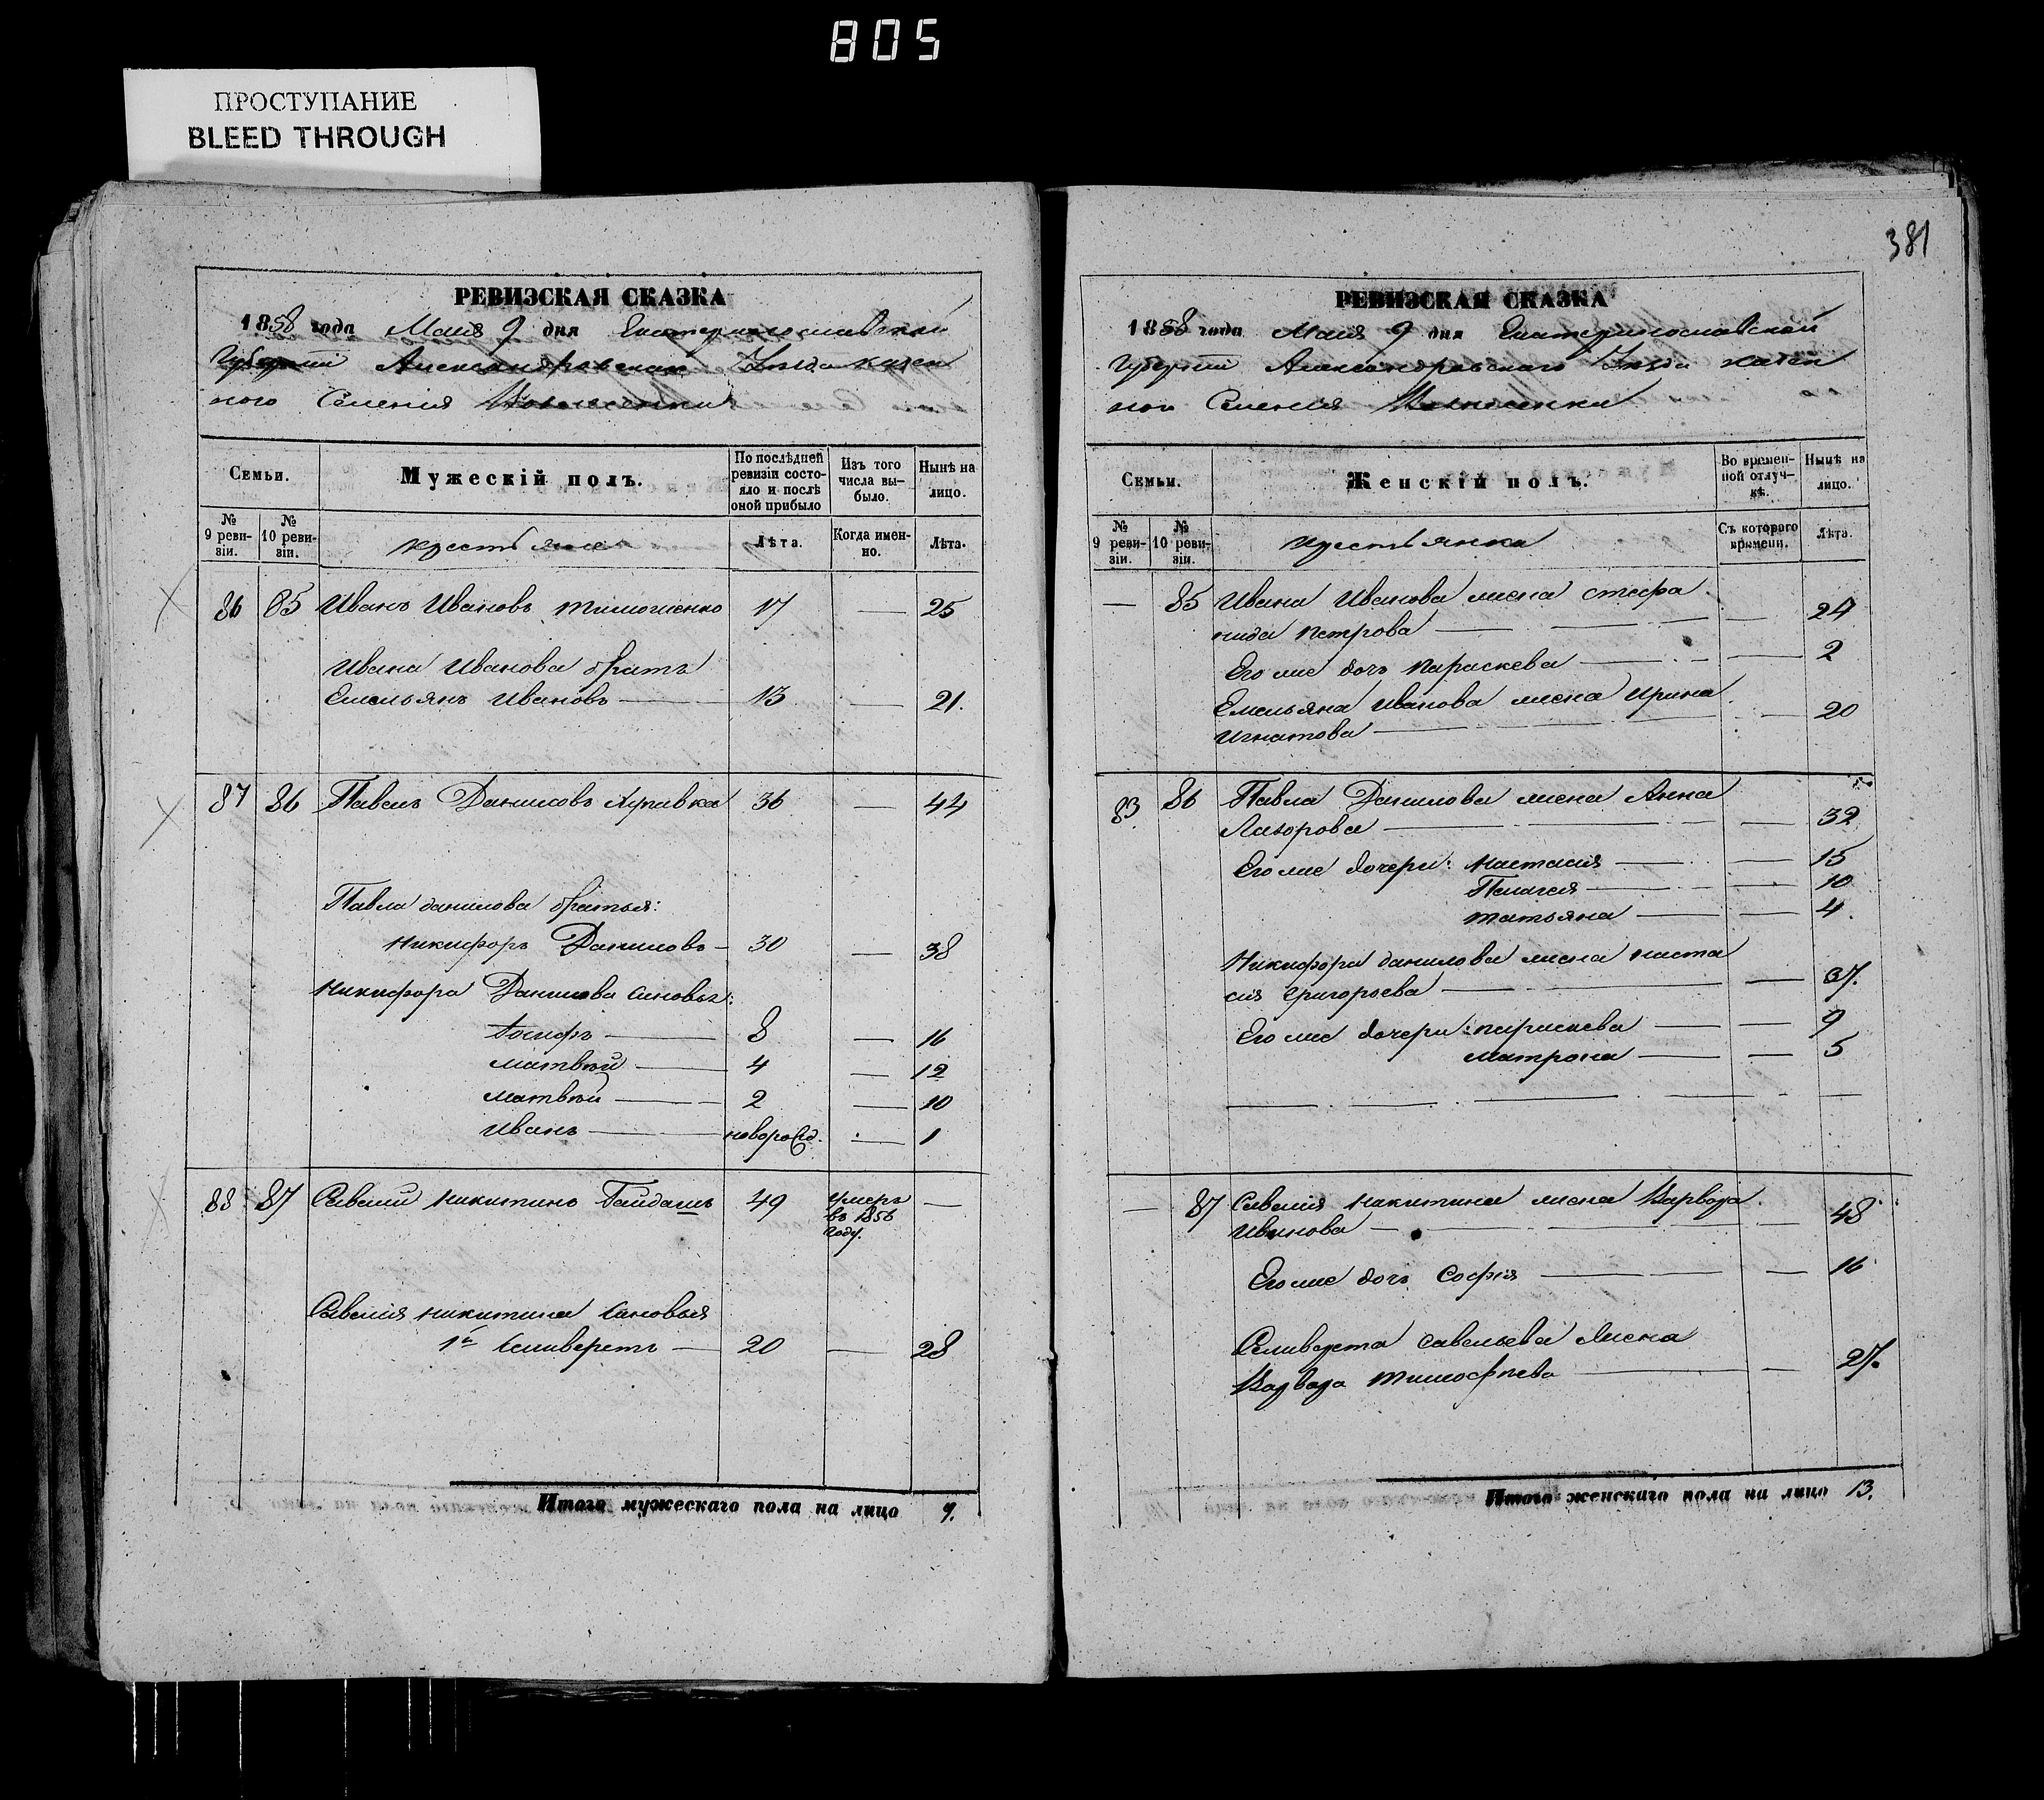 805
ПРОСТУПАНИЕ
BLEED THROUGH
РЕВИЗСКАЯ СКАЗКА
1858 года Маия 9 дня Екатеринославской
Губерніи Александровскаго Уѣзда казен
ного Селенія Вознесенки
Семьи.
Мужескій полъ.
По послѣдней ревизіи состояло и послѣ оной прибыло
Изъ того числа выбыло.
Нынѣ на лицо.
№ 9 ревизіи.
№ 10 ревизіи.
крестьяне
Лѣта.
Когда именно.
Лѣта.
86 85 Иванъ Ивановъ Тимошенко 17 — 25
Ивана Иванова братъ
Емельянъ Ивановъ — 13 — 21.
87 86 Павелъ Даниловъ 36 — 44
Павла данилова братья:
Никифоръ Даниловъ — 30 — 38
Никифора Данилова сыновья:
Іосифъ — 8 — 16
Матвѣй — 4 — 12
Матвѣй — 2 — 10
Иванъ — новорожд. — 1
88 87 Савелій Никитинъ Гайдашъ 49 умеръ въ 1856 году. —
Савелія Никитина сыновья
1й Селиверстъ — 20 — 28
Итого мужескаго пола на лицо 9.
381
РЕВИЗСКАЯ СКАЗКА
1858 года Маия 9 дня Екатеринославской
Губерніи Александровскаго Уѣзда казен
ного Селенія Вознесенки
Семьи.
Женскій полъ.
Во временной отлучкѣ.
Нынѣ на лицо.
№ 9 ревизіи.
№ 10 ревизіи.
крестьянки
Съ котораго времени.
Лѣта.
— 85 Ивана Иванова жена Стефа
нида Петрова — — 24
Его же дочь Параскева — — 2
Емельяна Иванова жена Ирина
Игнатова — — 20
83 86 Павла Данилова жена Анна
Лазорова — — 32
Его же дочери: Настасія — — 15
Пелагея — — 10
Татьяна — — 4.
Никифора данилова жена Наста
сія Григорьева — — 37.
Его же дочери: Параскева — — 9
Матрона — — 5
— 87 Савелія Никитина жена Варвара
Иванова — — 48
Его же дочь Софія — — 16
Селиверста Савельева жена
Варвара Тимофѣева — — 27.
Итого женскаго пола на лицо 13.